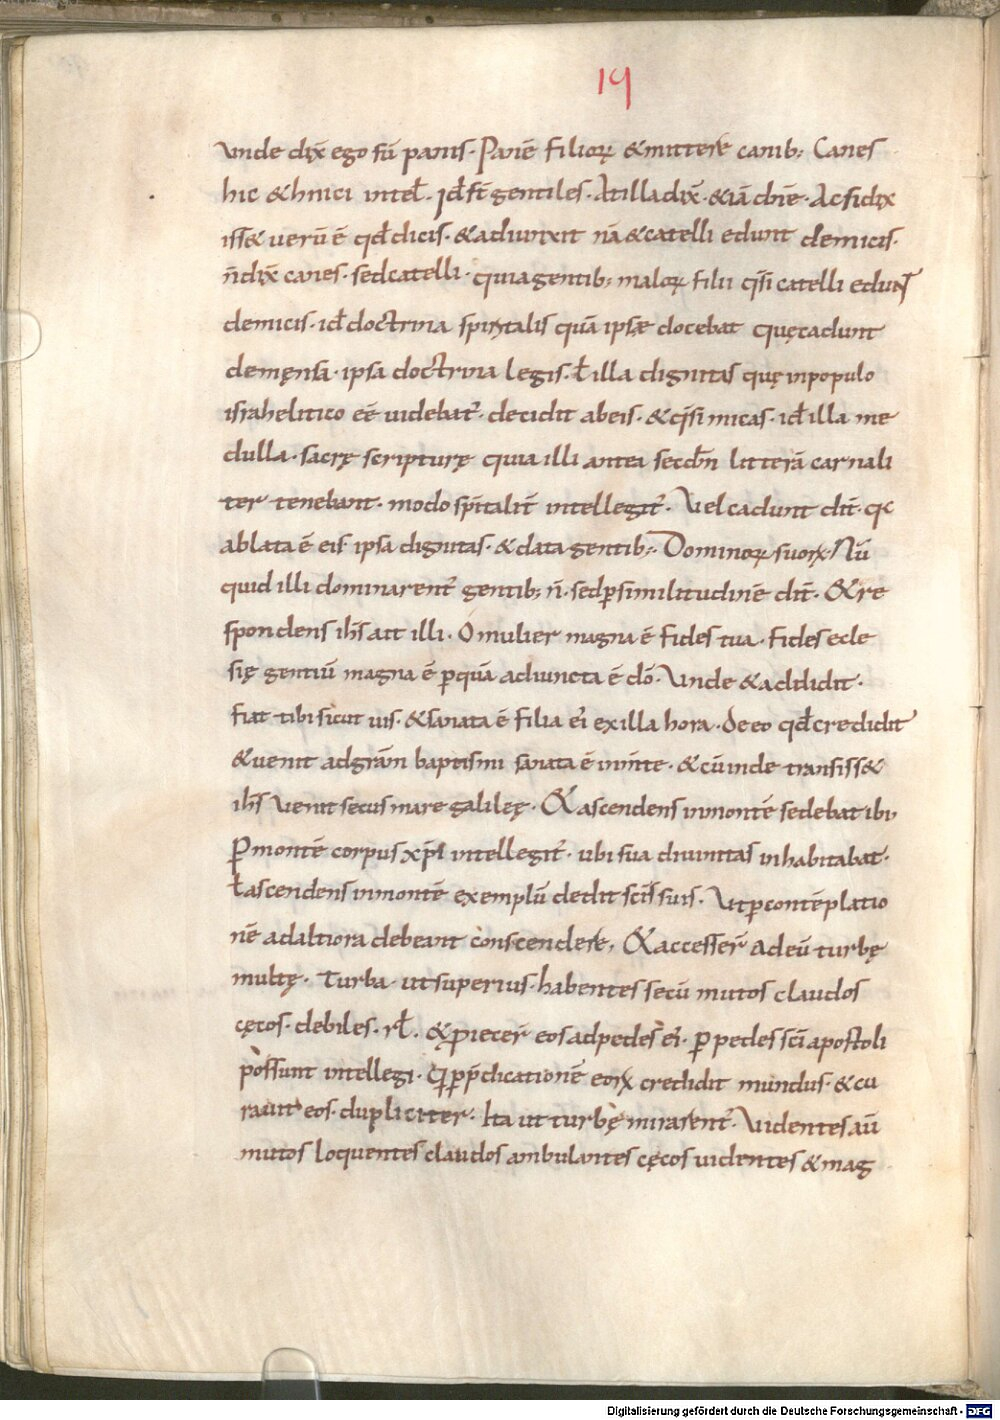 19
Unde dix̄ ego sū panis. Panē filioꝝ & mittere canib; Canes
hic & hnici intel̄. id̄ st̄ gentiles. At illa dix̄. & iā dn̄e. Ac si dix
iss& uerū ē qd̄ dicis. & adiunxit nā & catelli edunt de micis.
n̄ dix̄ canes. sed catelli. quia gentib; maloꝝ filii qͣsi catelli edunt
de micis. id̄ doctrina spiritalis quā ipsae docebat quę cadunt
de męnsa. ipsa doctrina legis. ł illa dignitas quę in populo
israhelitico eē uidebat᷑. decidit ab eis. & qͣsi micas. id̄ illa me
dulla. sacrę scripturę quia illi antea secdn̄ litterā carnali
ter tenebant. modo spītalit̄ intellegit᷑. Vel cadunt dic̄. qͥa
ablata ē eis ipsa dignitas. & data gentib;. Dominoꝝ suoꝝ. Nū
quid illi dominarent᷑ gentib; n̄. sed ꝑ similitudinē dic̄. & re
spondens ih̄s ait illi. O mulier magna ē fides tua. fides ecle
się gentiū magna ē ꝑ quā adiuncta ē dō. Unde & addidit.
fiat tibi sicut uis. & sanata ē filia ei᷑ ex illa hora. de eo qd̄ credidit
& uenit ad grām baptismi sanata ē in m̄te. & cū inde transiss&
ih̄s uenit secus mare galileę. & ascendens in montē sedebat ibi
ꝑ montē corpus xp̄i intellegit᷑. ubi sua diuinitas inhabitabat.
ł ascendens in montē exemplū dedit sc̄is suis. Ut ꝑ contēplatio
nē ad altiora debeant conscendere, & accesser̄ ad eū turbę
multę. Turba ut superius. habentes secū mutos claudos
cęcos. debiles. rł. & ꝓiecer̄ eos ad pedes ei᷑. ꝑ pedes sc̄i apostoli
possunt intellegi. qͥ ꝑ p̄dicationē eoꝝ credidit mundus. & cu
rauit eos. dupliciter. Ita ut turbę mirarent᷑. Uidentes aū
mutos loquentes claudos ambulantes cęcos uidentes & mag
Digitalisierung gefördert durch die Deutsche Forschungsgemeinschaft - DFG